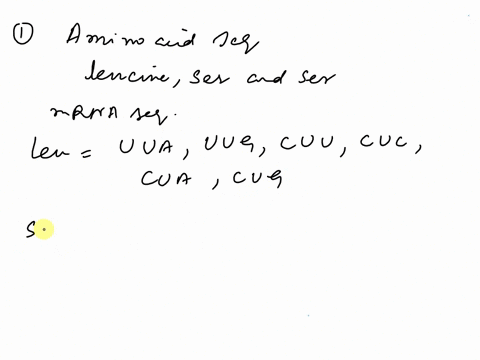 ① Amino acid seq
leucine, ser and ser
mRNA seq.
Leu = UUA, UUG, CUU, CUC,
CUA, CUG
S